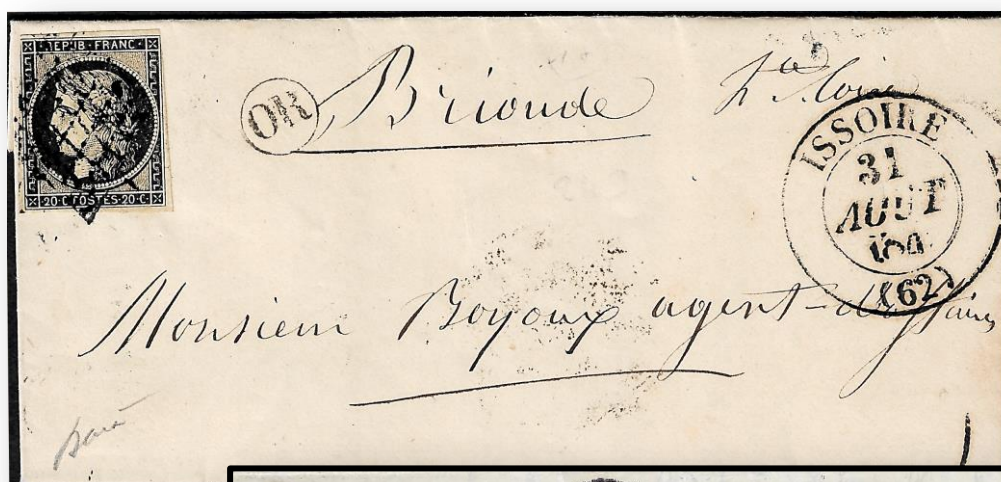 REPUB·FRANC·
20·C·POSTES·20·C·
OR
Brioude hte Loire
ISSOIRE
31
AOUT
(62)
Monsieur Boyoux agent-d'affaires